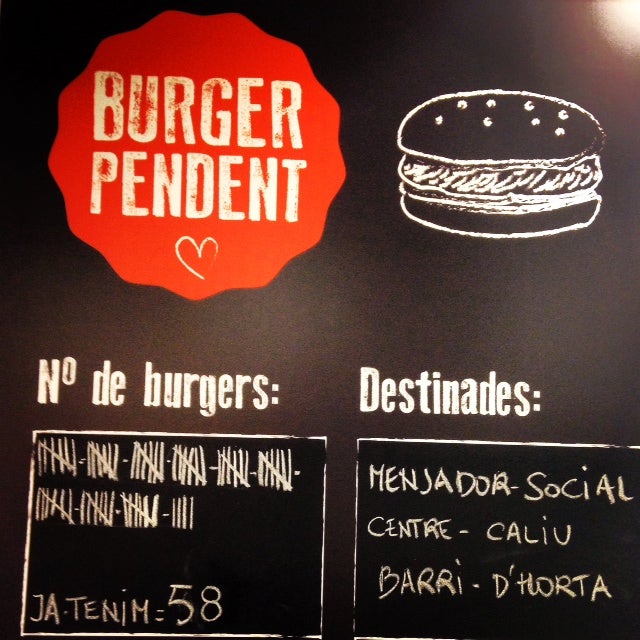 BURGER
PENDENT
Nº de burgers:
JA·TENIM=58
Destinades:
MENJADOR-SOCIAL
CENTRE- CALIU
BARRI- D'HORTA